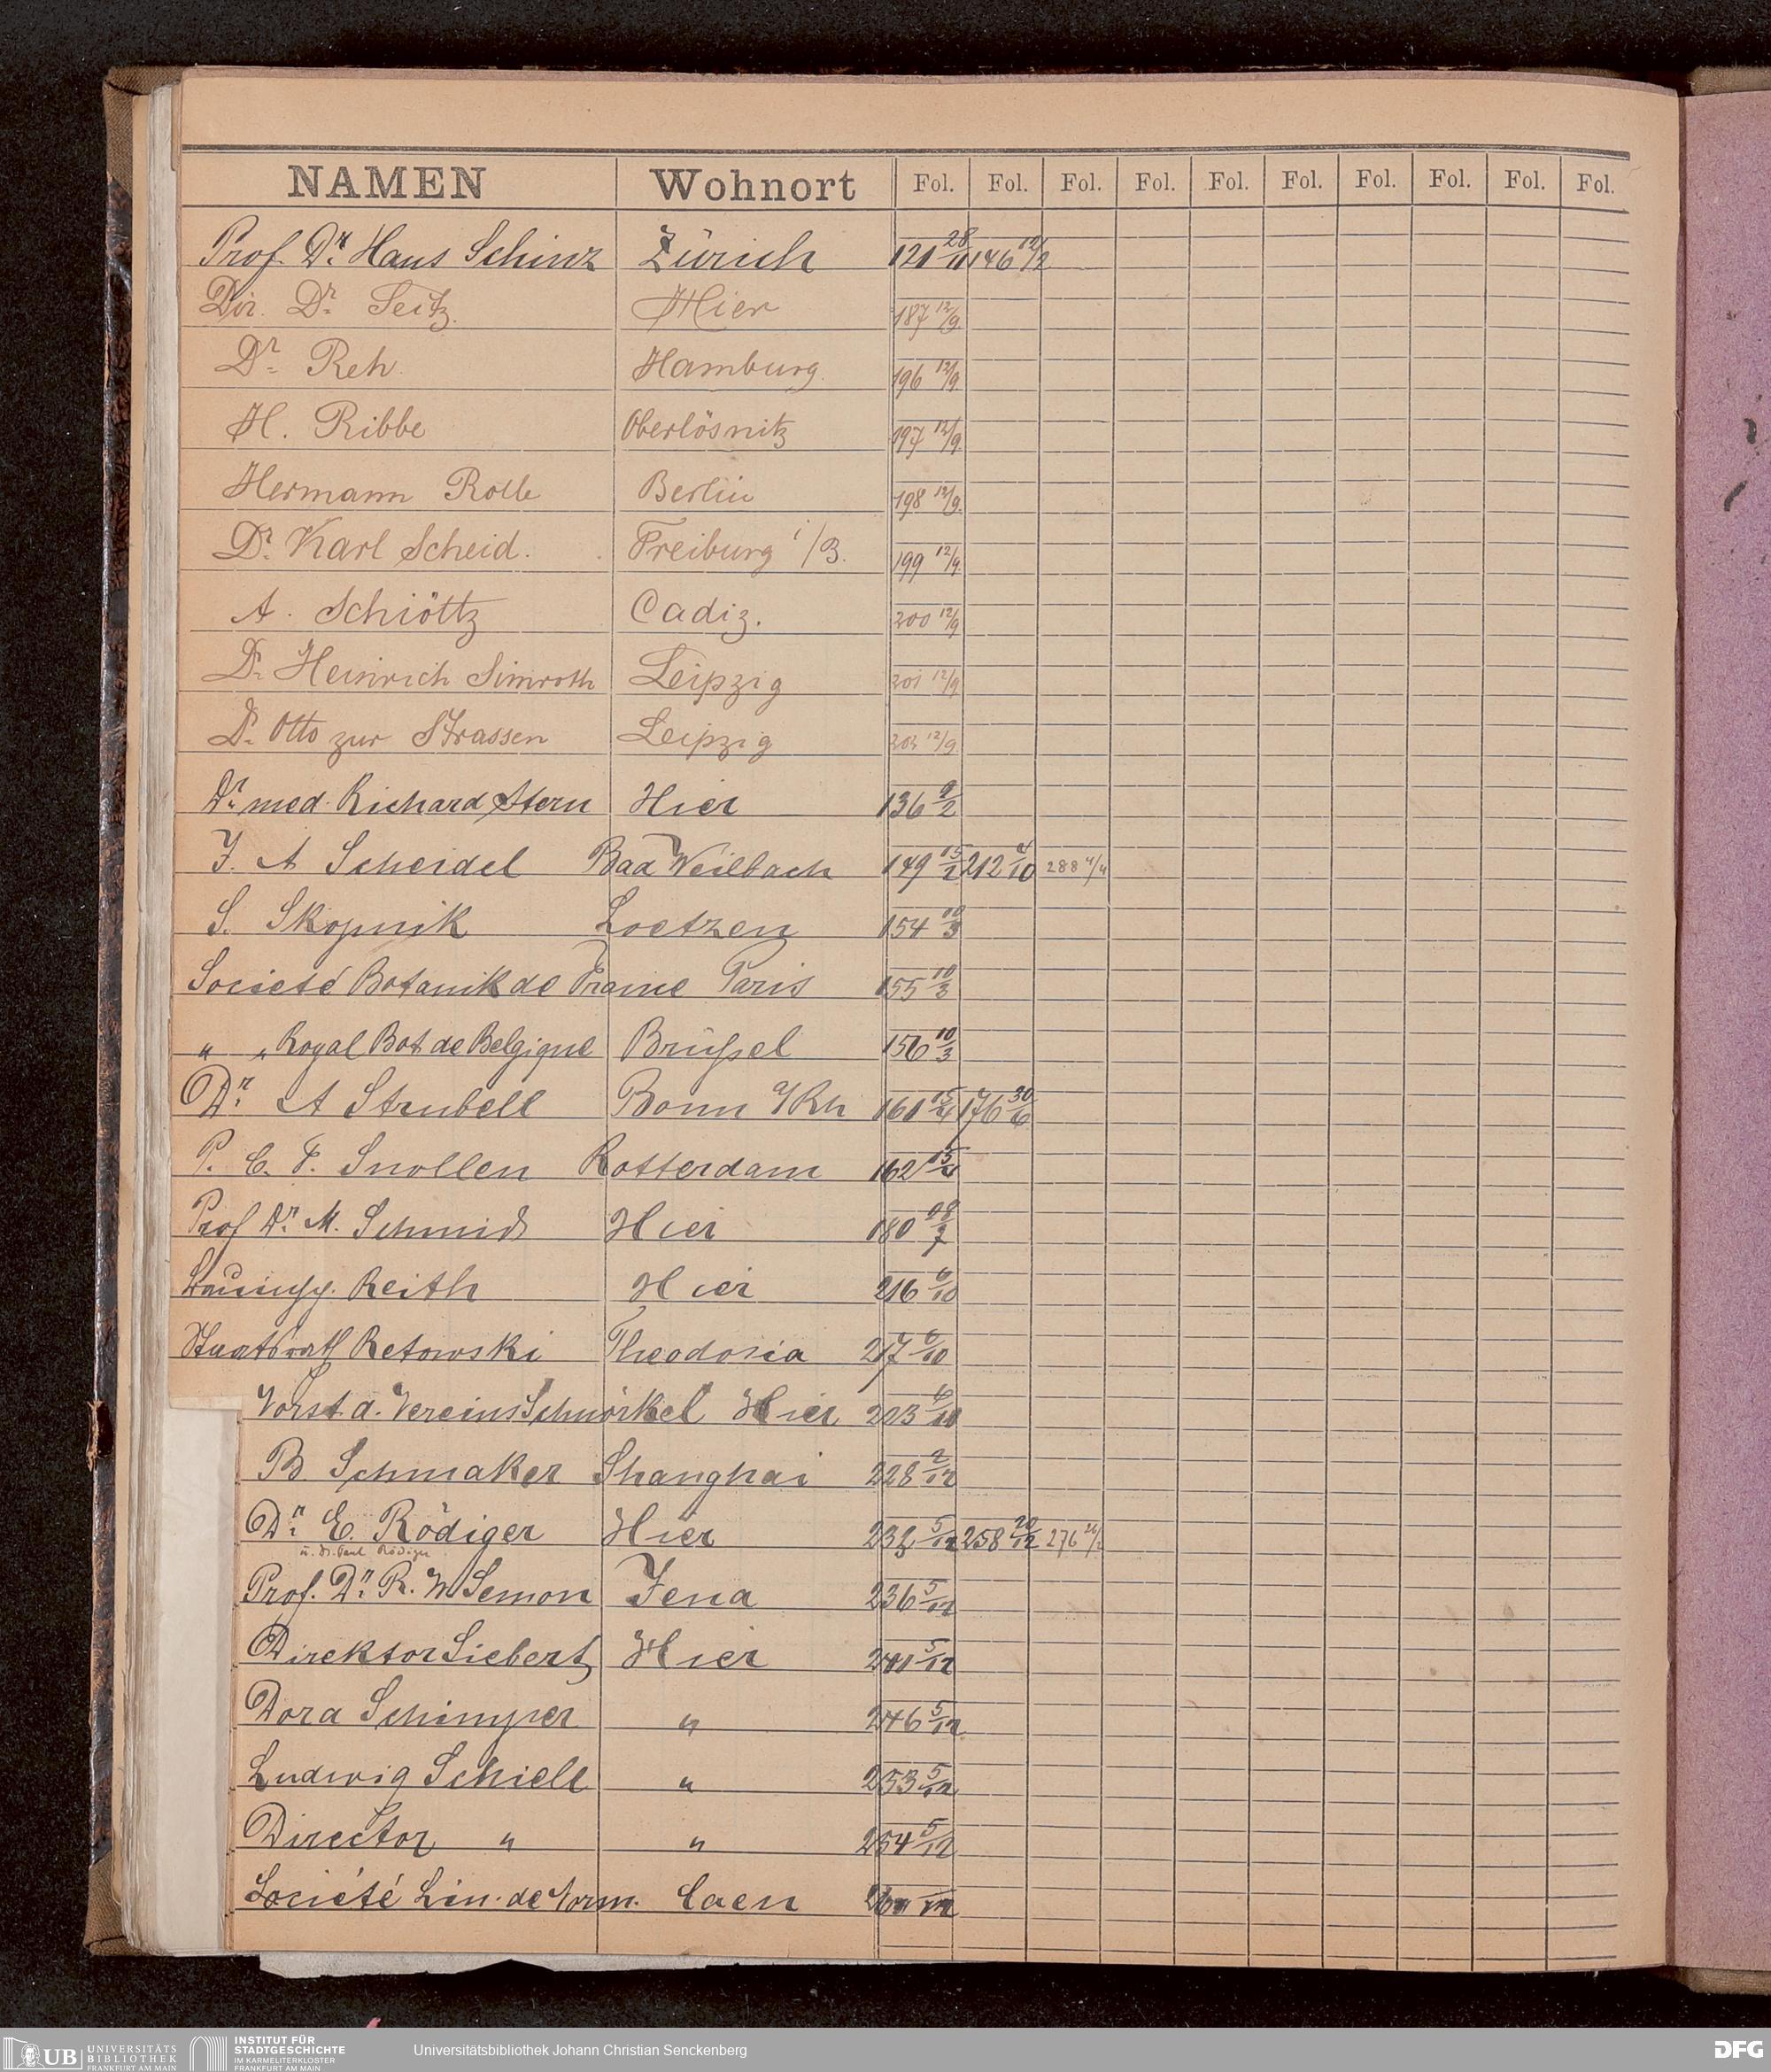 NAMEN Wohnort Fol. Fol. Fol. Fol. Fol. Fol. Fol. Fol. Fol. Fol.
Prof. Dr. Hans Schinz Zürich 121 28/11 146 12/2
Dir. Dr. Seitz. Hier 187 12/9.
Dr. Reh. Hamburg. 196 12/9.
H. Ribbe Oberlösnitz 197 12/9.
Hermann Rolle Berlin 198 12/9.
Dr. Karl Scheid. Freiburg i/B. 199 12/9.
A. Schiöttz Cadiz. 200 12/9
Dr. Heinrich Simroth Leipzig 201 12/9
Dr. Otto zur Strassen Leipzig 202 12/9.
Dr. med. Richard Stern Hier 136 9/2
J. A Scheidel Bad Weilbach 149 15/2 212 4/10 288 4/4
S. Skopnik Loetzen 154 10/3
Societé Botanik de France Paris 155 10/3
" " Royal Bot de Belgique Brüssel 156 10/3
Dr. A Strubell Bonn a/Rh 161 15/4 176 30/6
P. C. T. Snollen Rotterdam 162 15/4
Prof Dr. M. Schmidt Hier 180 08/7
Reith Hier 216 6/10
Staatsrath Retowski Theodosia 217 6/10
Vorst. d. Vereins Schnörkel Hier 223 6/10
B Schmaker Shanghai 228 2/12
Dr. E. Rödiger Hier 5/12 258 20/12 276
u. Dr. Paul Rödiger
Prof. Dr. R. W Semon Jena 236 5/12
Direktor Siebert Hier 241 5/12
Dora Schimper " 246 5/12
Ludwig Schiele " 253 5/12
Director " " 254 5/12
Société Lin. de Norm. Caen
UB UNIVERSITÄTS
BIBLIOTHEK
FRANKFURT AM MAIN
INSTITUT FÜR
STADTGESCHICHTE
IM KARMELITERKLOSTER
FRANKFURT AM MAIN
Universitätsbibliothek Johann Christian Senckenberg
DFG